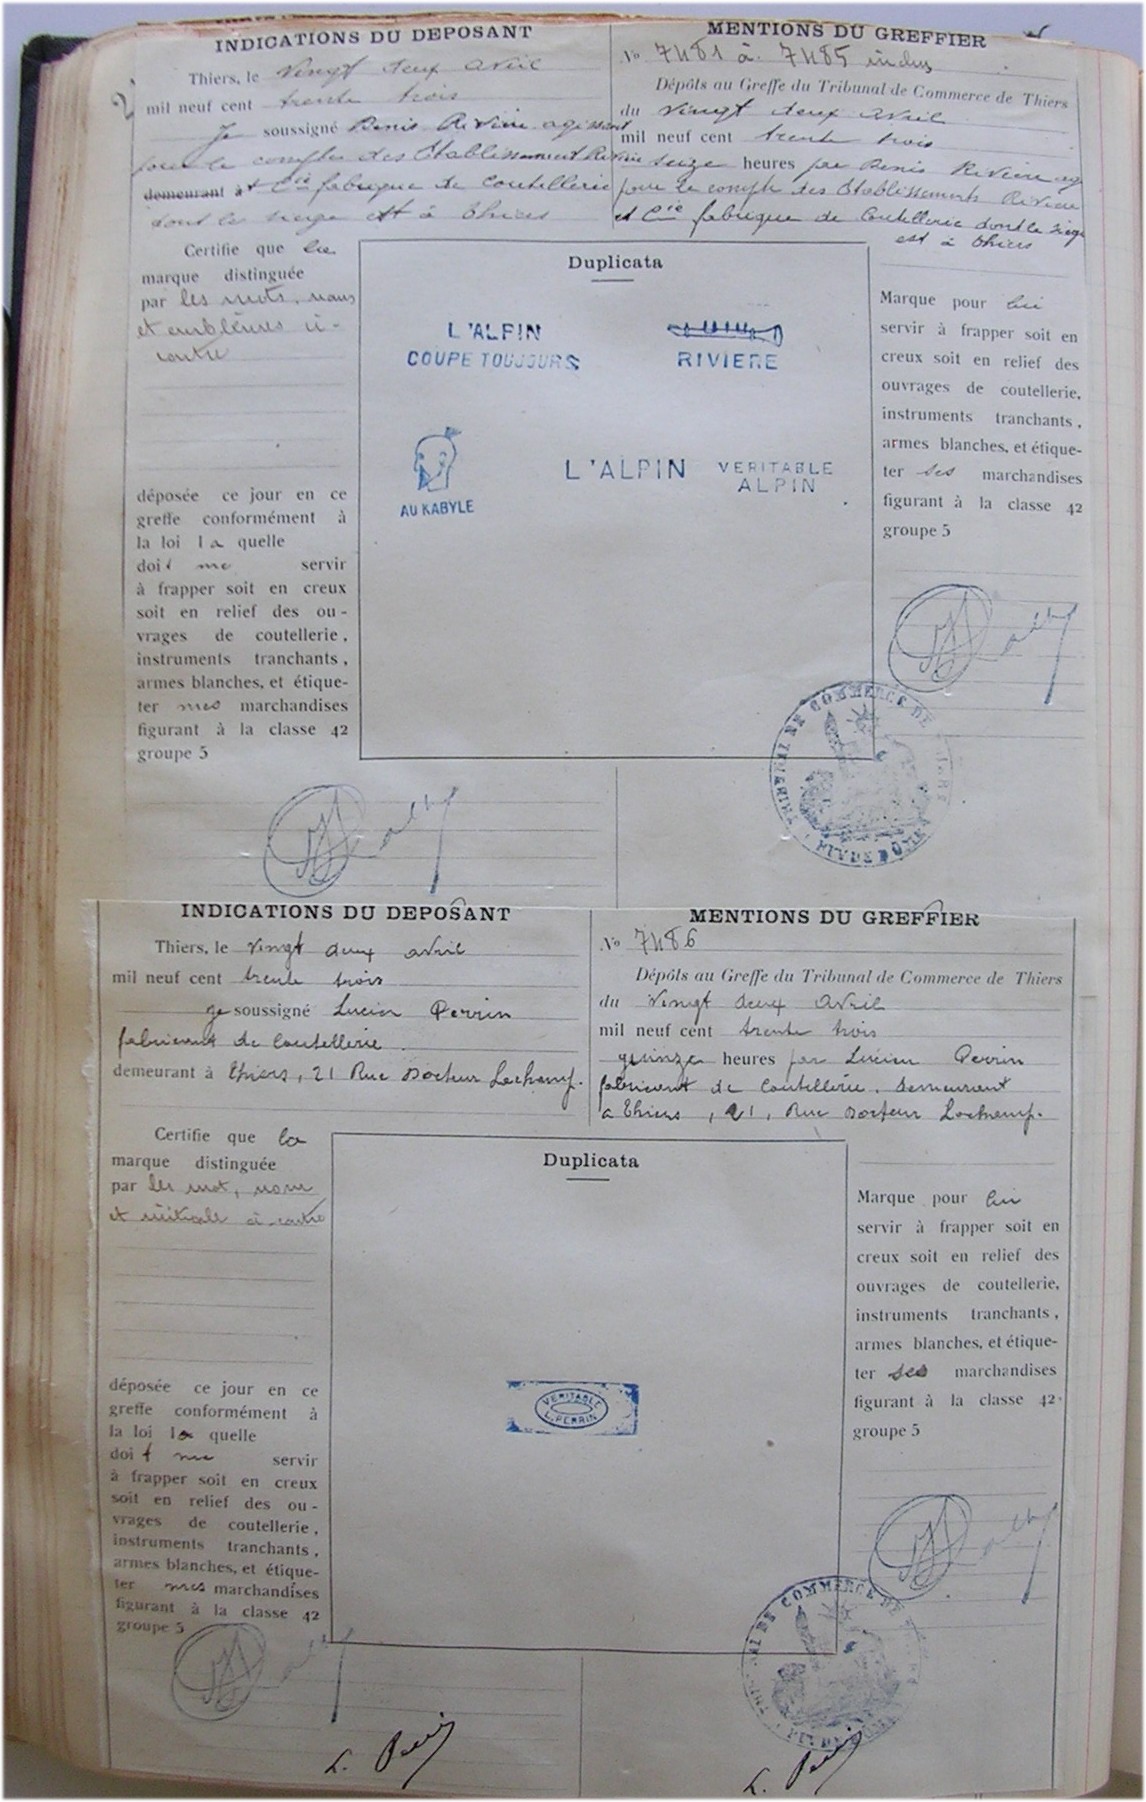 INDICATIONS DU DEPOSANT
Thiers, le vingt deux avril
mil neuf cent trente trois
Je soussigné Denis Rivière agissant
pour le compte des Etablissement Rivière
demeurant à et Cie fabrique de Coutellerie
dont le siege est à Thiers
Certifie que la
marque distinguée
par les mots, noms
et emblèmes ci-
contre
déposée ce jour en ce
greffe conformément à
la loi la quelle
doit me servir
à frapper soit en creux
soit en relief des ou-
vrages de coutellerie,
instruments tranchants,
armes blanches, et étique-
ter mes marchandises
figurant à la classe 42
groupe 5
MENTIONS DU GREFFIER
No 7481 à 7485 inclus
Dépôts au Greffe du Tribunal de Commerce de Thiers
du vingt deux avril
mil neuf cent trente trois
seize heures par Denis Rivière ag
pour le compte des Etablissements Rivière
et Cie fabrique de Coutellerie dont le siège
est à Thiers
Duplicata
L'ALPIN
COUPE TOUJOURS
RIVIERE
AU KABYLE
L'ALPIN
VERITABLE
ALPIN
Marque pour lui
servir à frapper soit en
creux soit en relief des
ouvrages de coutellerie,
instruments tranchants,
armes blanches, et étique-
ter ses marchandises
figurant à la classe 42
groupe 5
TRIBUNAL DE COMMERCE DE THIERS
PUY DE DOME
INDICATIONS DU DEPOSANT
Thiers, le vingt deux avril
mil neuf cent trente trois
je soussigné Lucien Perrin
fabricant de Coutellerie
demeurant à Thiers, 21 Rue Docteur Lachamp.
Certifie que la
marque distinguée
par les mot, nom
et initiale ci-contre
déposée ce jour en ce
greffe conformément à
la loi la quelle
doit me servir
à frapper soit en creux
soit en relief des ou-
vrages de coutellerie,
instruments tranchants,
armes blanches, et étique-
ter mes marchandises
figurant à la classe 42
groupe 5
MENTIONS DU GREFFIER
No 7486
Dépôts au Greffe du Tribunal de Commerce de Thiers
du vingt deux avril
mil neuf cent trente trois
quinze heures par Lucien Perrin
fabricant de Coutellerie. demeurant
a Thiers, 21, Rue Docteur Lachamp.
Duplicata
VERITABLE
L. PERRIN
Marque pour lui
servir à frapper soit en
creux soit en relief des
ouvrages de coutellerie,
instruments tranchants,
armes blanches, et étique-
ter ses marchandises
figurant à la classe 42
groupe 5
L. Perrin
L. Perrin